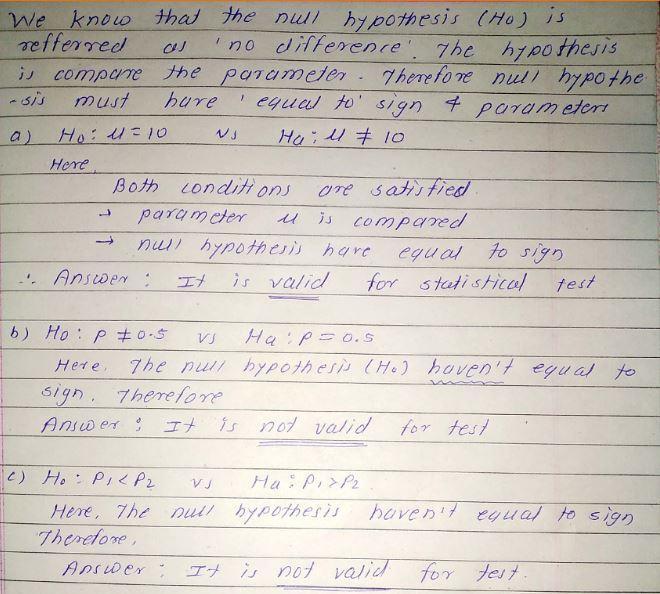 We know that the null hypothesis (H0) is
refferred as 'no difference'. The hypothesis
is compare the parameter. Therefore null hypothe
-sis must have 'equal to' sign & parameters
a) H0: μ=10 vs Ha: μ ≠ 10
Here,
Both conditions are satisfied.
→ parameter μ is compared
→ null hypothesis have equal to sign
∴ Answer : It is valid for statistical test
b) H0: p ≠ 0.5 vs Ha: p = 0.5
Here, The null hypothesis (H0) haven't equal to
sign. Therefore
Answer : It is not valid for test
c) H0: P1 < P2 vs Ha: P1 > P2.
Here, The null hypothesis haven't equal to sign
Therefore,
Answer : It is not valid for test.